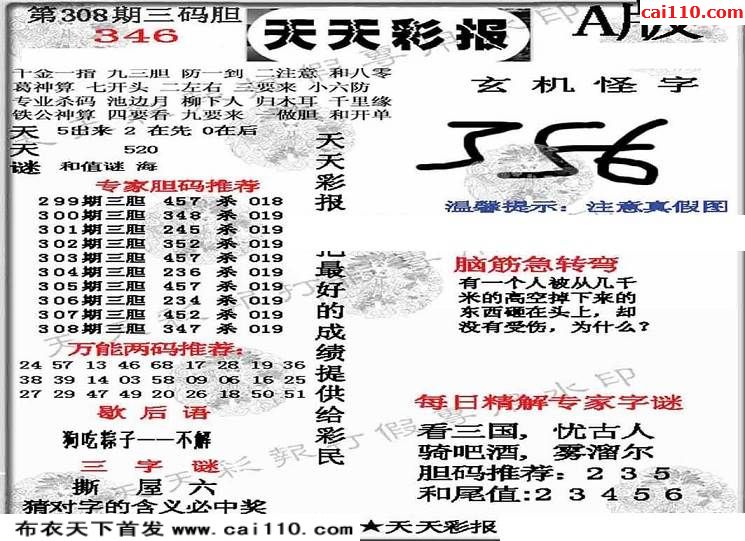 第308期三码胆
346
天天彩报
A版
cai110.com
千金一指 九三胆 防一到 二注意 和八零
葛神算 七开头 二左右 三要来 小六防
专业杀码 池边月 柳下人 归木耳 千里缘
铁公神算 四要看 九要来 一做胆 和开单
天 5出来 2 在先 0在后
天 520
谜 和值谜 海
专家胆码推荐
299期三胆 457 杀 018
300期三胆 348 杀 019
301期三胆 245 杀 019
302期三胆 352 杀 019
303期三胆 457 杀 019
304期三胆 236 杀 019
305期三胆 457 杀 019
306期三胆 234 杀 019
307期三胆 452 杀 019
308期三胆 347 杀 019
万能两码推荐:
24 57 13 46 68 17 28 19 36
38 39 14 03 58 09 06 16 25
27 29 47 49 20 26 18 50 51
歇后语
狗吃粽子——不解
三字谜
撕 屋 六
猜对字的含义必中奖
天天彩报
把最好的成绩提供给彩民
玄机怪字
356
温馨提示: 注意真假图
脑筋急转弯
有一个人被从几千
米的高空掉下来的
东西砸在头上, 却
没有受伤, 为什么?
每日精解专家字谜
看三国, 忧古人
骑吧酒, 雾溜尔
胆码推荐: 2 3 5
和尾值:2 3 4 5 6
布衣天下首发 www.cai110.com ★天天彩报